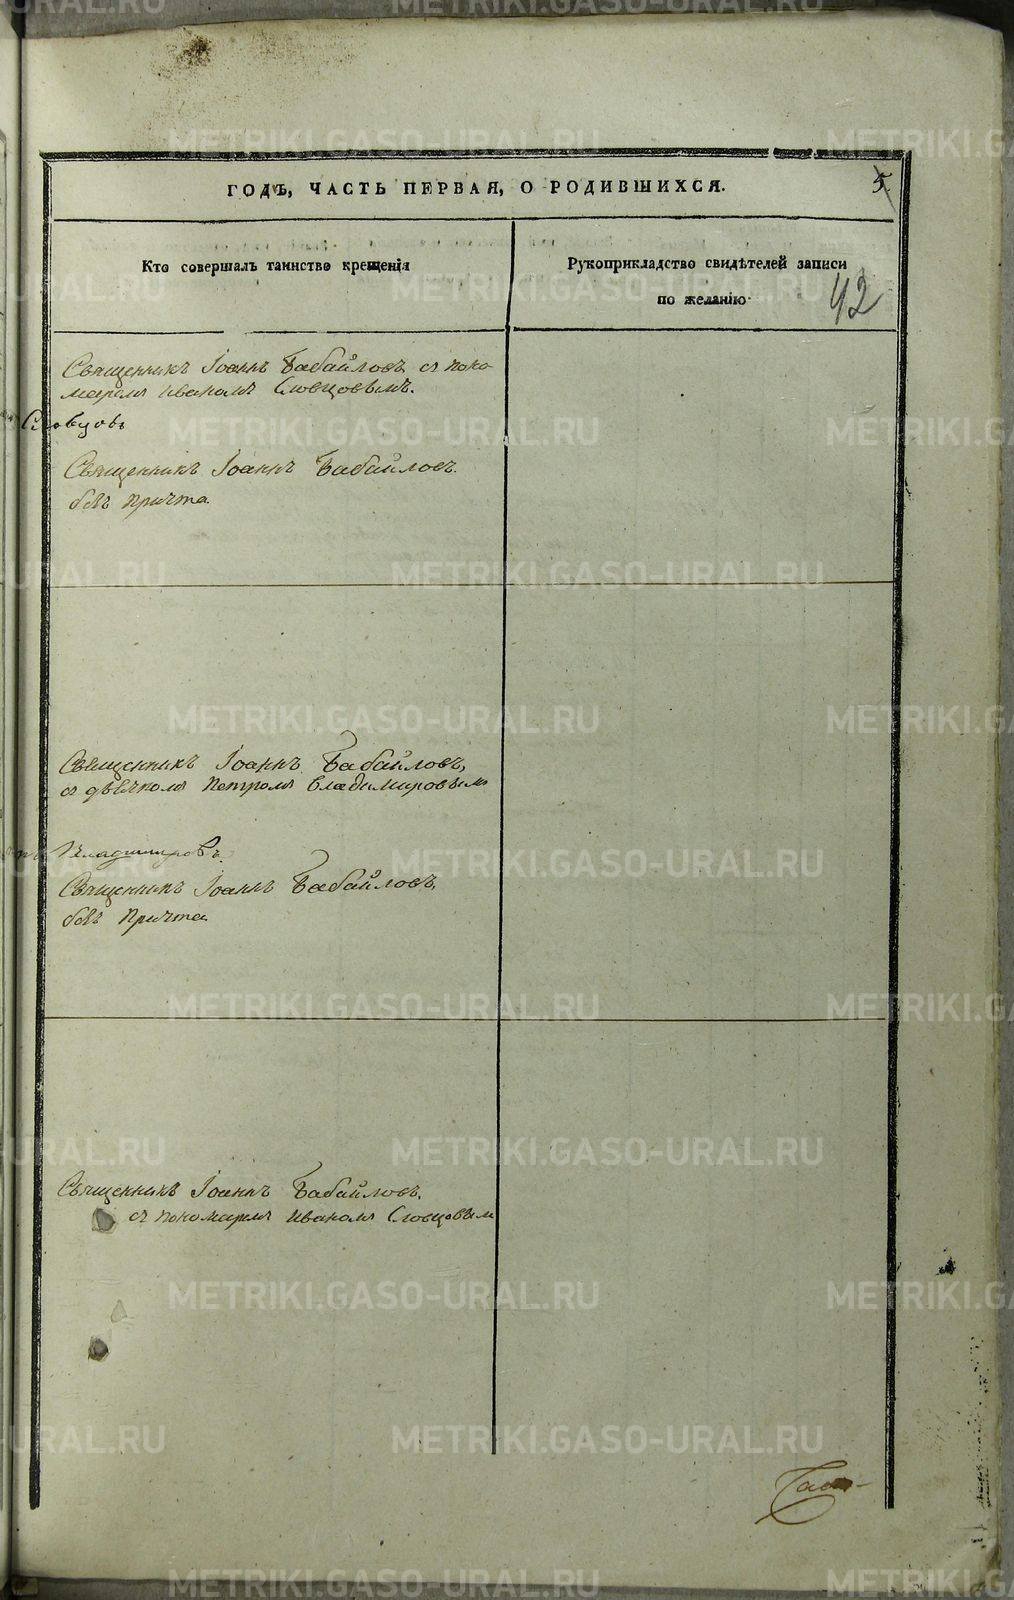 ГОДЪ, ЧАСТЬ ПЕРВАЯ, О РОДИВШИХСЯ.
5
Кто совершалъ таинство крещенія
Рукоприкладство свидѣтелей записи
по желанію
42
Священникъ Іоаннъ Бабайловъ съ поно-
маремъ Иваномъ Словцовымъ.
Словцовъ
Священникъ Іоаннъ Бабайловъ
безъ причта.
Священникъ Іоаннъ Бабайловъ,
съ дьячкомъ Петромъ Владимировымъ
Владимировъ.
Священникъ Іоаннъ Бабайловъ,
безъ причта
Священникъ Іоаннъ Бабайловъ,
съ пономаремъ Иваномъ Словцовымъ
METRIKI.GASO-URAL.RU